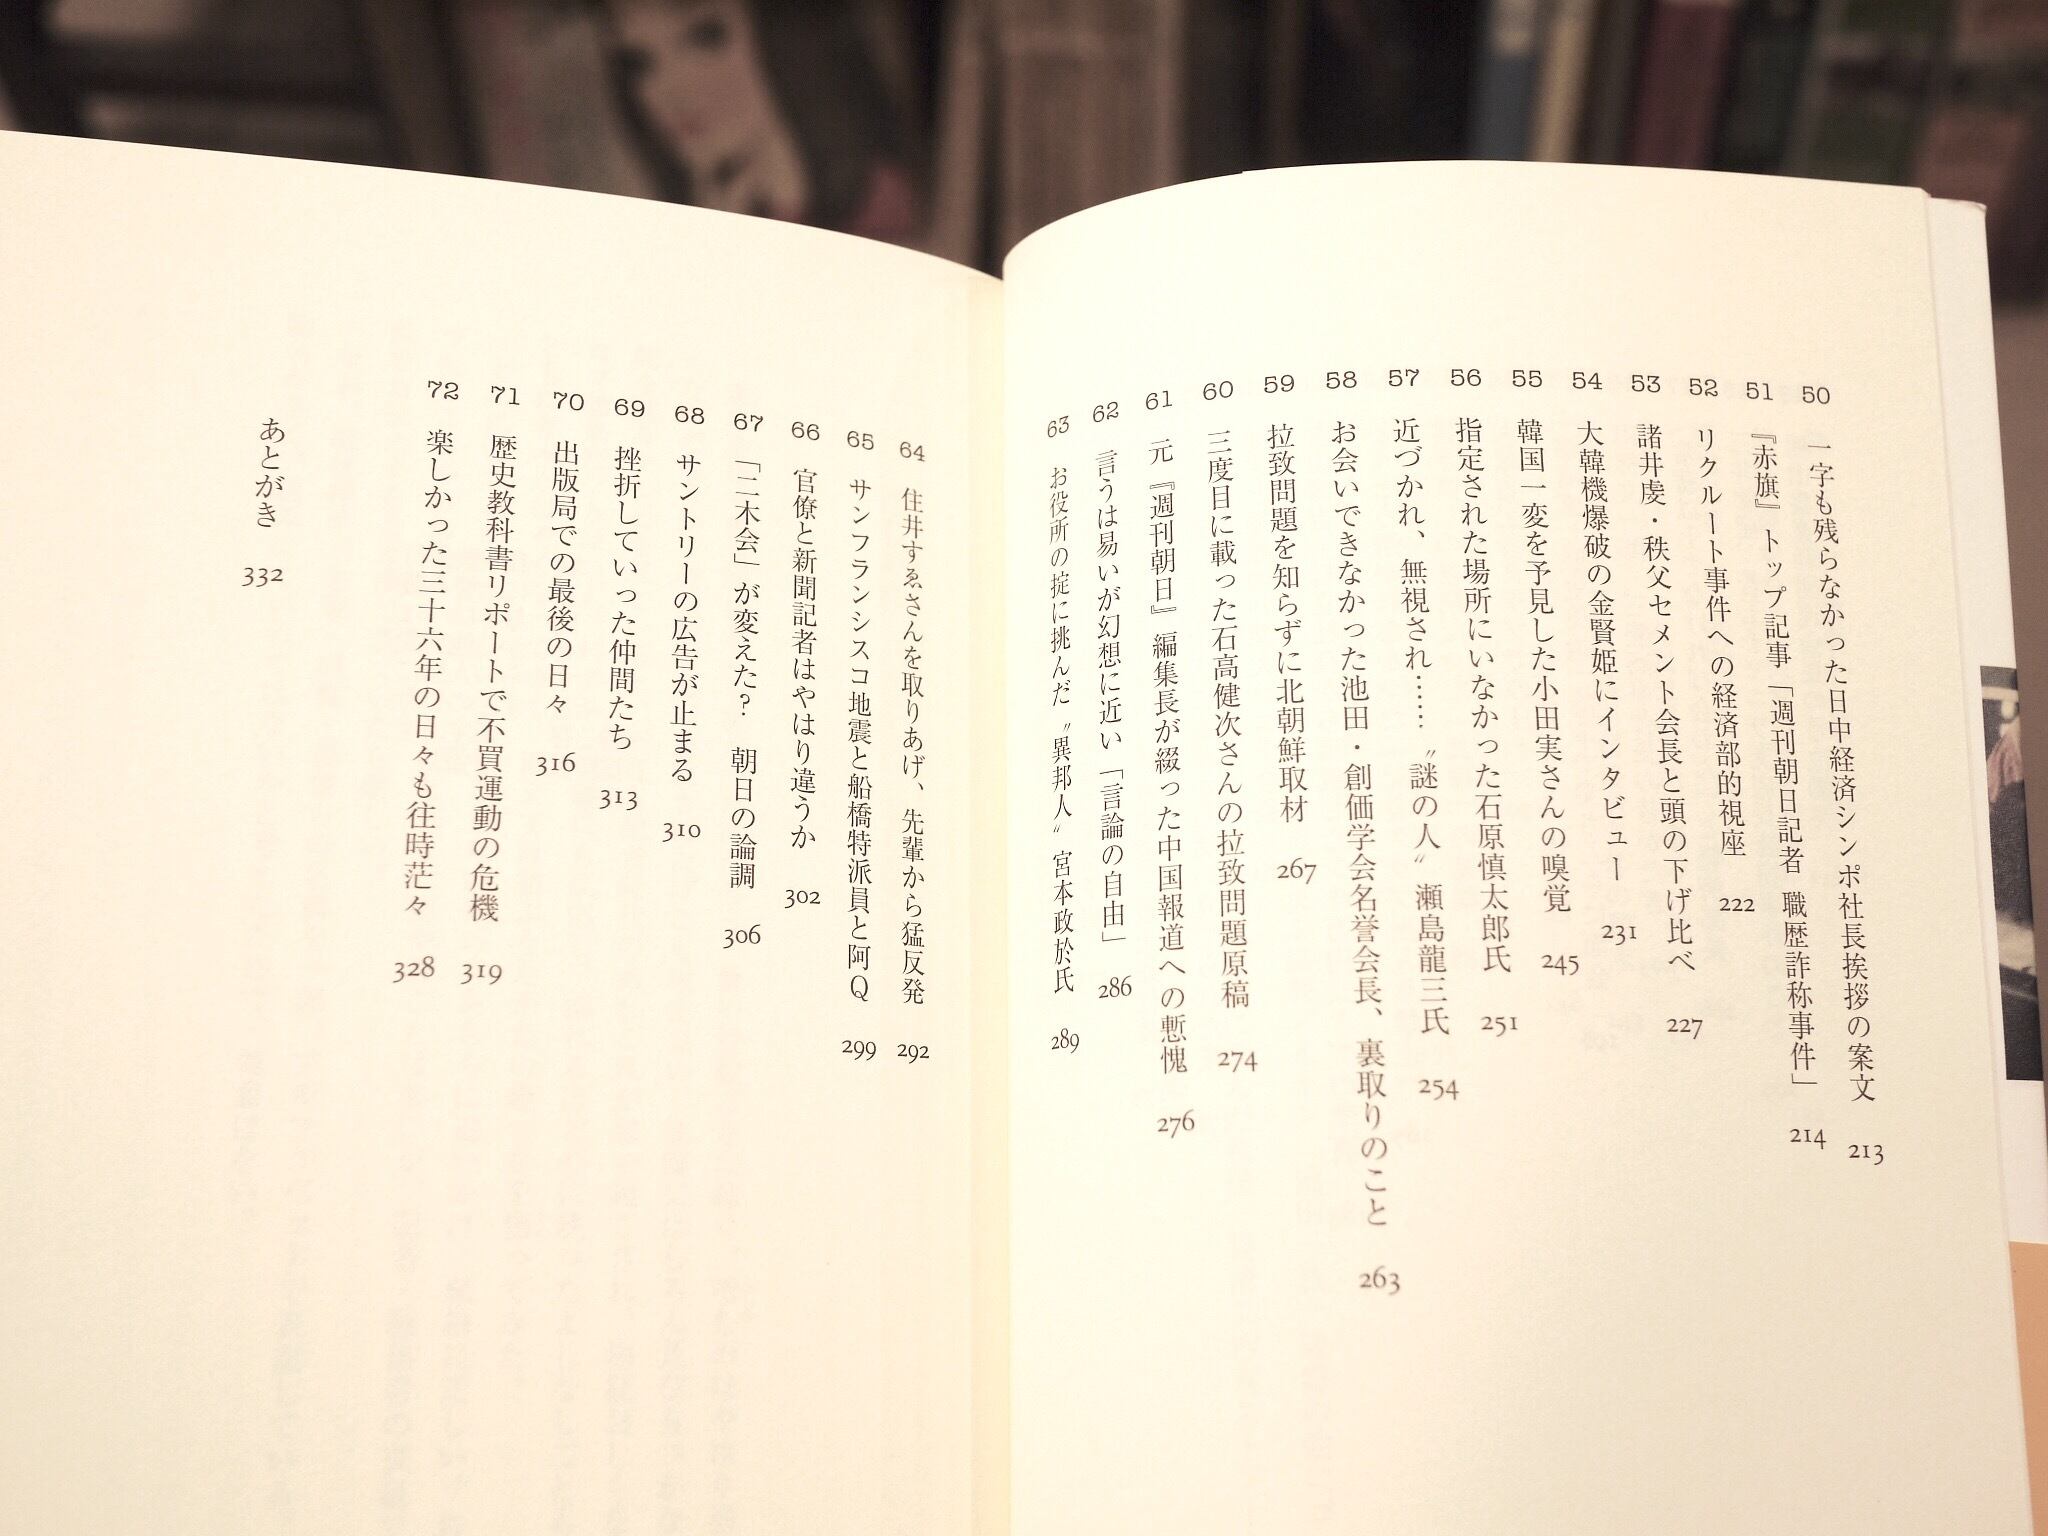 50 一字も残らなかった日中経済シンポ社長挨拶の案文 213
51 『赤旗』トップ記事「週刊朝日記者 職歴詐称事件」 214
52 リクルート事件への経済部的視座 222
53 諸井虔・秩父セメント会長と頭の下げ比べ 227
54 大韓機爆破の金賢姫にインタビュー 231
55 韓国一変を予見した小田実さんの嗅覚 245
56 指定された場所にいなかった石原慎太郎氏 251
57 近づかれ、無視され……〝謎の人〟瀬島龍三氏 254
58 お会いできなかった池田・創価学会名誉会長、裏取りのこと 263
59 拉致問題を知らずに北朝鮮取材 267
60 三度目に載った石高健次さんの拉致問題原稿 274
61 元『週刊朝日』編集長が綴った中国報道への慙愧 276
62 言うは易いが幻想に近い「言論の自由」 286
63 お役所の掟に挑んだ〝異邦人〟宮本政於氏 289
64 住井すゑさんを取りあげ、先輩から猛反発 292
65 サンフランシスコ地震と船橋特派員と阿Q 299
66 官僚と新聞記者はやはり違うか 302
67 「二木会」が変えた? 朝日の論調 306
68 サントリーの広告が止まる 310
69 挫折していった仲間たち 313
70 出版局での最後の日々 316
71 歴史教科書リポートで不買運動の危機 319
72 楽しかった三十六年の日々も往時茫々 328
あとがき 332